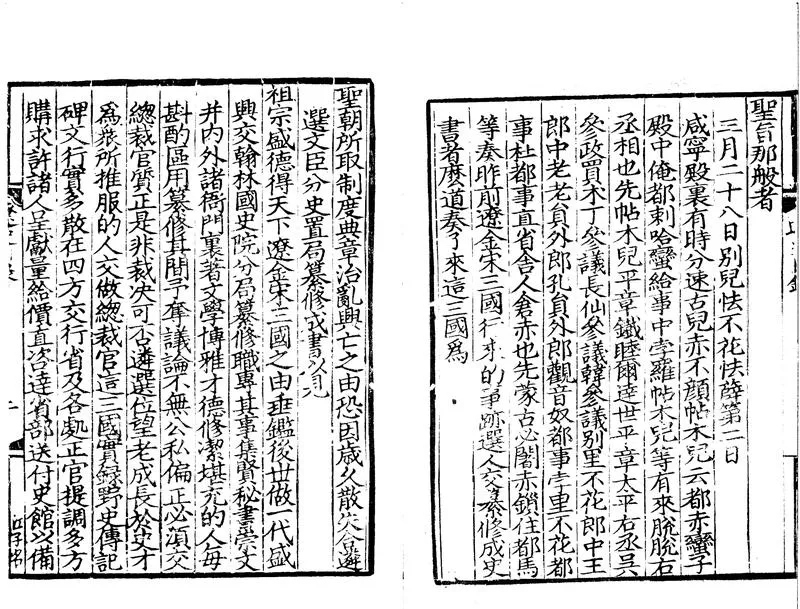 聖旨那般者
三月二十八日別兒怯不花怯薛第二日
咸寧殿裏有時分速古兒赤不顔帖木兒云都赤蠻子
殿中俺都剌哈蠻給事中孛羅帖木兒等有來脫脫右
丞相也先帖木兒平章鐵睦爾達世平章太平右丞吳
參政買朮丁參議長仙參議韓參議別里不花郎中王
郎中老老員外郎孔員外郎觀音奴都事孛里不花都
事杜都事直省舍人倉赤也先蒙古必闍赤鎖住都馬
等奏昨前遼金宋三國行來的事跡選人交纂修成史
書者麽道奏了來這三國爲
聖朝所取制度典章治亂興亡之由恐因歲久散失合遴
選文臣分史置局纂修成書以見
祖宗盛德得天下遼金宋三國之由垂鑑後世做一代盛
興交翰林國史院分局纂修職專其事集賢秘書崇文
并內外諸衙門裏著文學博雅才德修潔堪充的人每
斟酌區用纂修其間予奪議論不無公私偏正必須交
總裁官質正是非裁决可否遴選位望老成長於史才
爲衆所推服的人交做總裁官這三國實錄野史傳記
碑文行實多散在四方交行省及各處正官提調多方
購求許諸人呈獻量給價直咨達省部送付史館以備